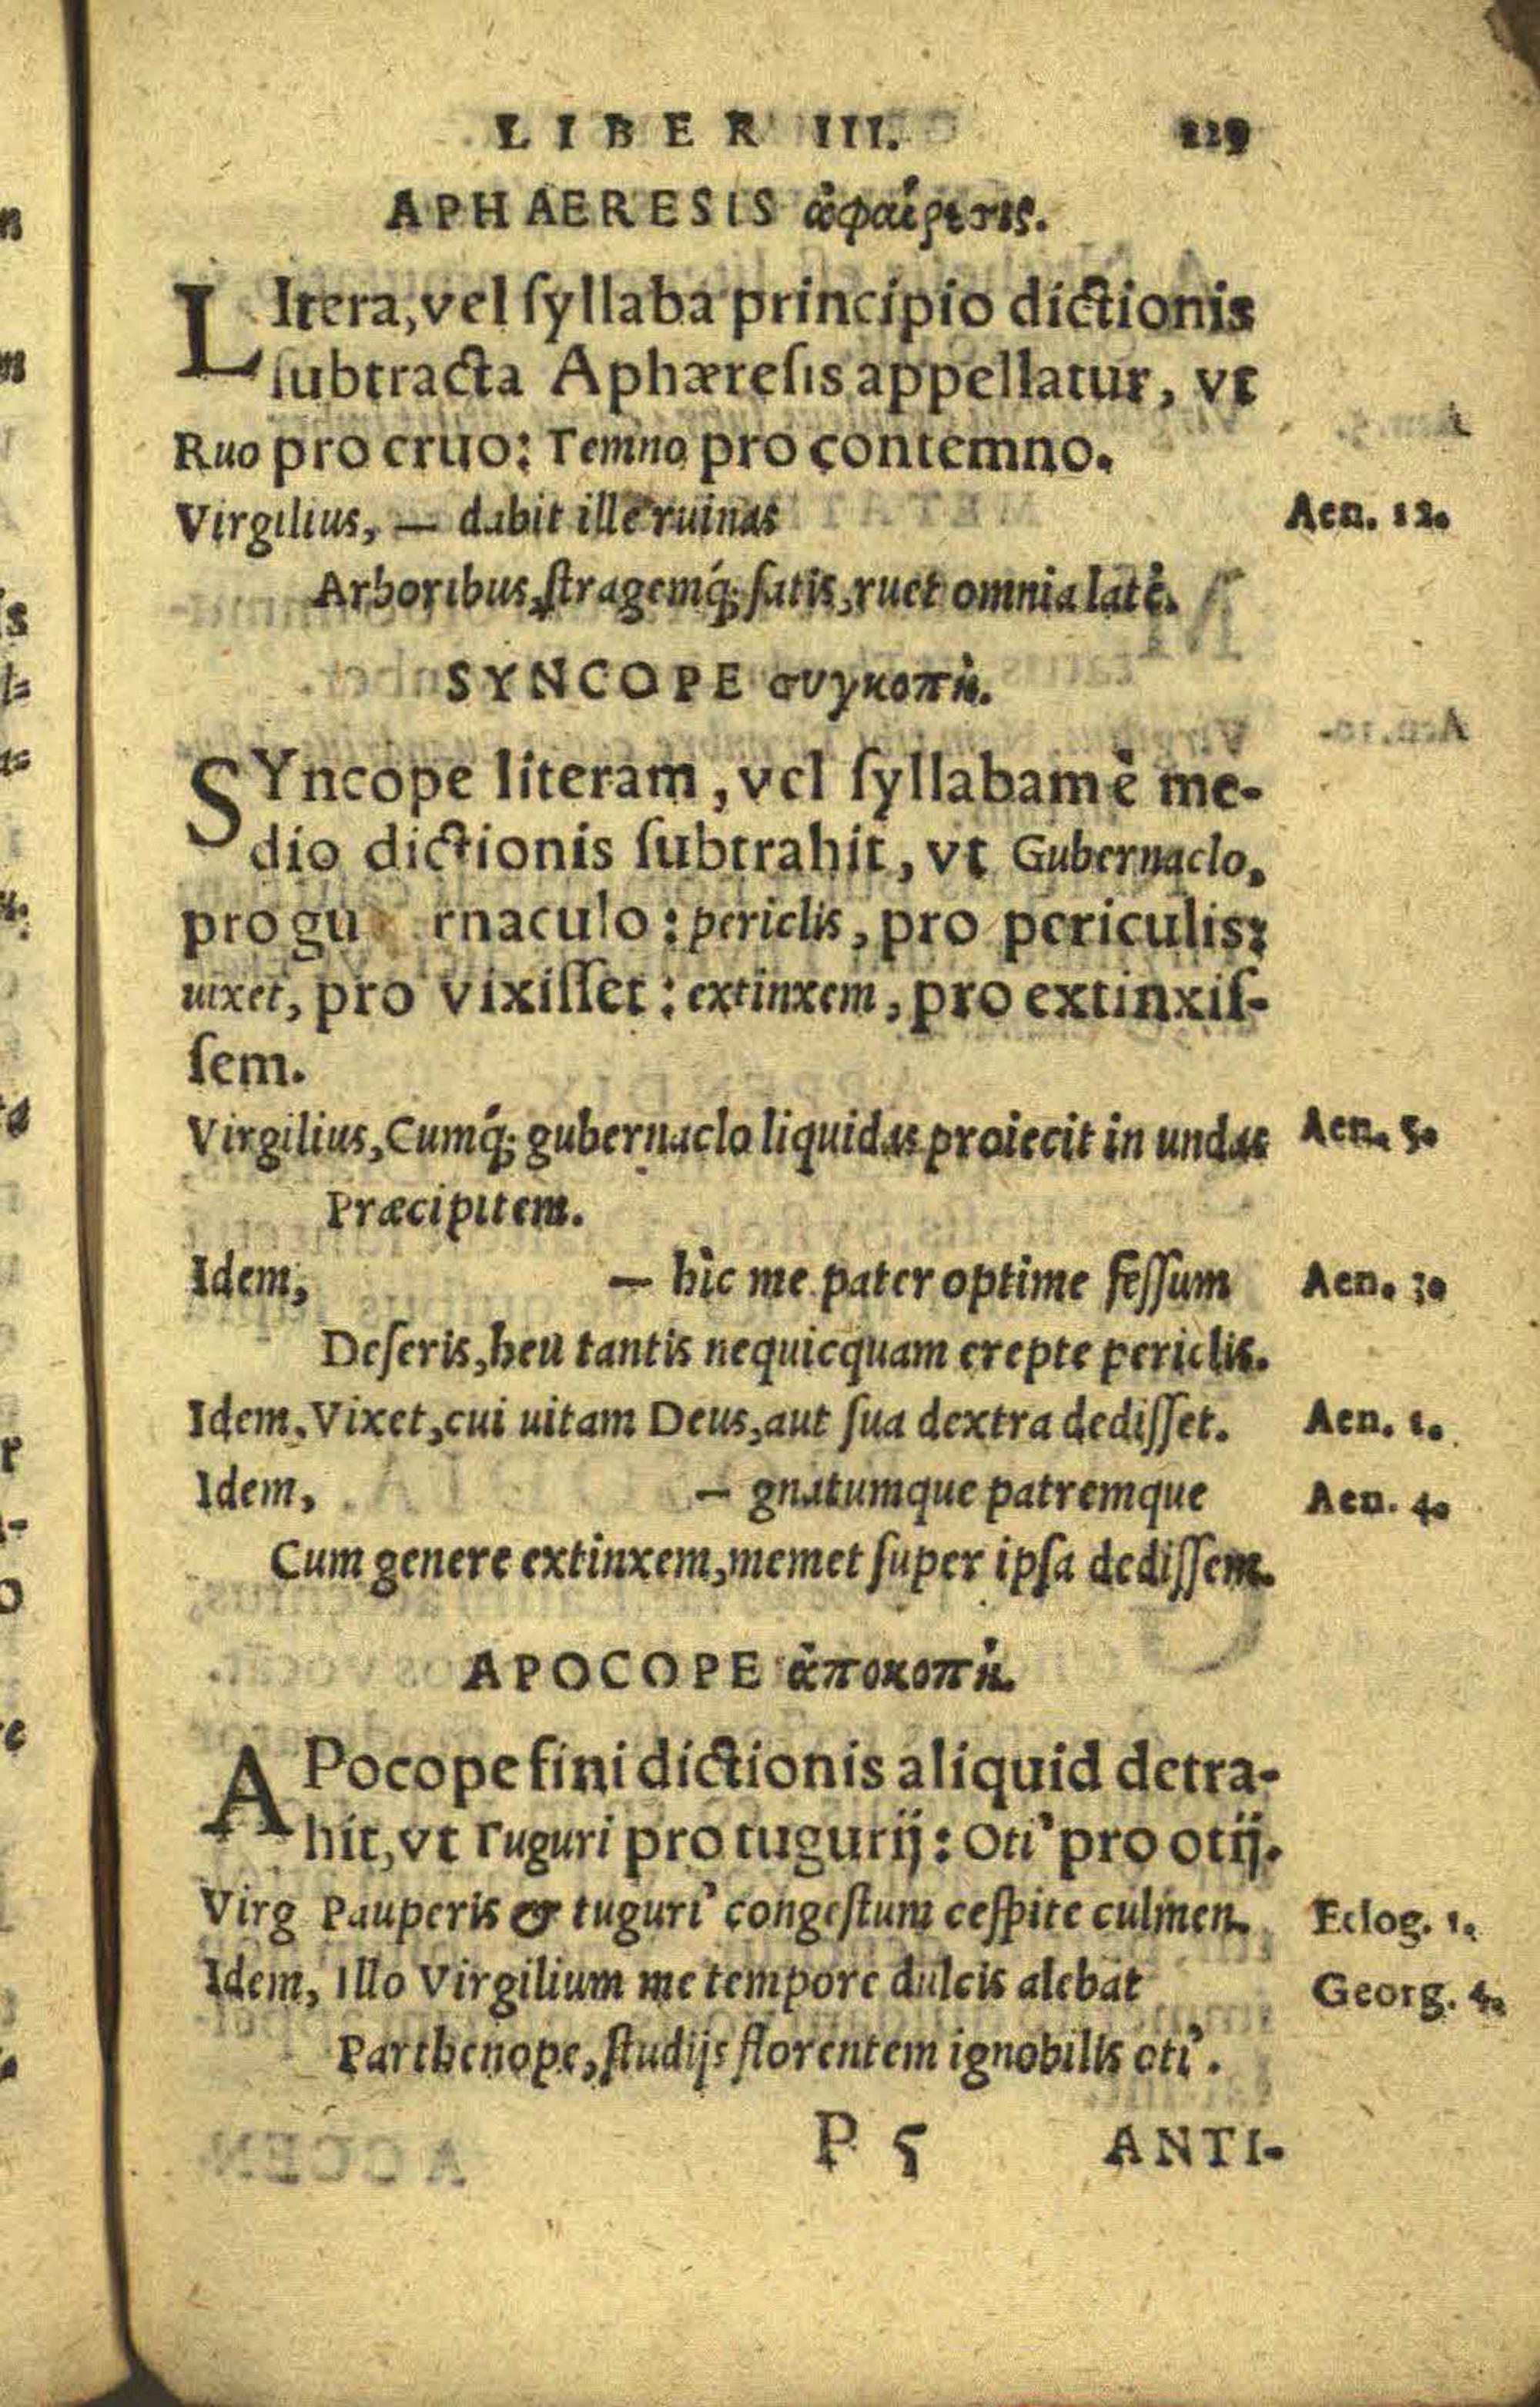 LIBER III. 229
APHAERESIS ἀφαίρεσις.
LItera, vel ſyllaba principio dictionis
ſubtracta Aphæreſis appellatur, vt
Ruo pro eruo: Temno pro contemno.
Virgilius, — dabit ille ruinas Aen. 12.
Arboribus, ſtragemq́; ſatis, ruet omnia latè.
SYNCOPE συγκοπὴ.
SYncope literam, vel ſyllabam è me-
dio dictionis ſubtrahit, vt Gubernaclo,
pro gu rnaculo: periclis, pro periculis;
uixet, pro vixiſſet: extinxem, pro extinxiſ-
ſem.
Virgilius, Cumq́; gubernaclo liquidas proiecit in undas Aen. 5.
Præcipitem.
Idem, — hìc me pater optime feſſum Aen. 3.
Deſeris, heu tantis nequicquam erepte periclis.
Idem, Vixet, cui uitam Deus, aut ſua dextra dediſſet. Aen. 1.
Idem, — gnatumque patremque Aen. 4.
Cum genere extinxem, memet ſuper ipſa dediſſem.
APOCOPE ἀποκοπὴ.
APocope fini dictionis aliquid detra-
hit, vt Tuguri pro tugurij: Oti’ pro otij.
Virg Pauperis & tuguri’ congeſtum ceſpite culmen. Eclog. 1.
Idem, Illo Virgilium me tempore dulcis alebat Georg. 4.
Parthenope, ſtudijs florentem ignobilis oti’.
P 5 ANTI-